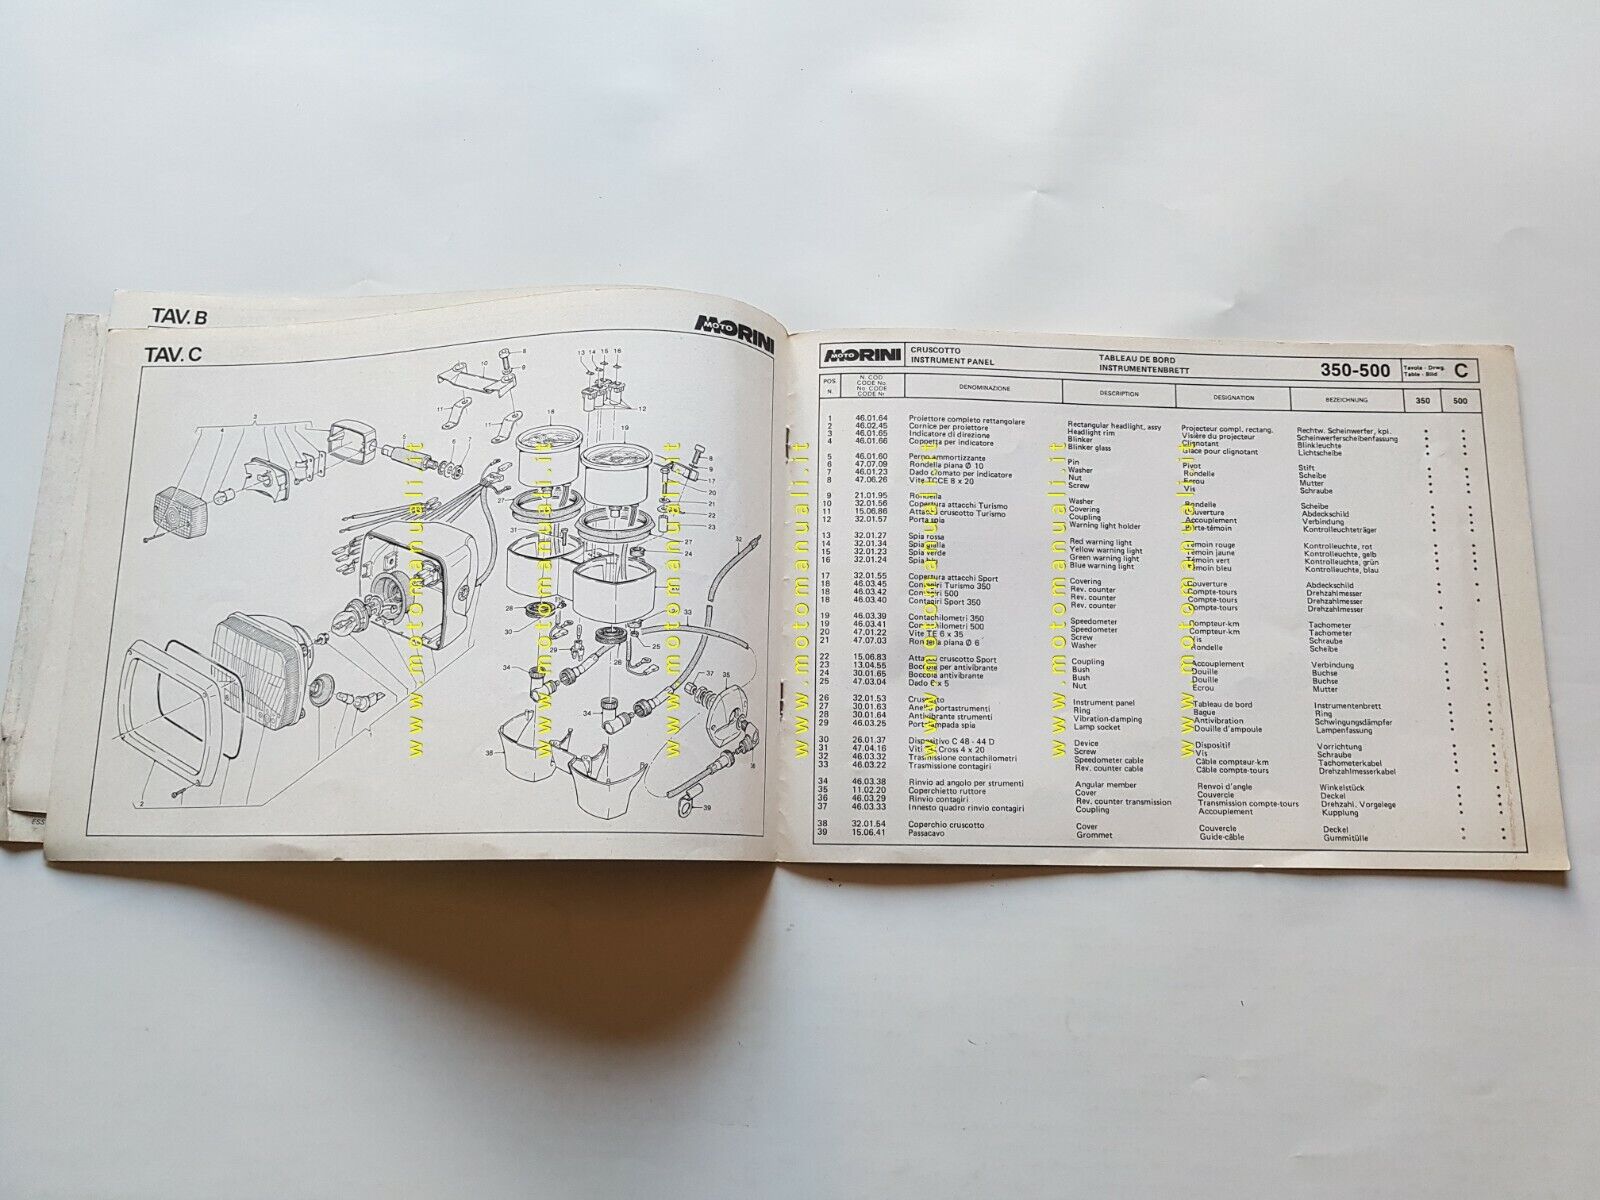 TAV. B
TAV. C
MOTO MORINI
MOTO MORINI
CRUSCOTTO
INSTRUMENT PANEL
TABLEAU DE BORD
INSTRUMENTENBRETT
350-500
Tavola - Drwg.
Table - Bild
C
POS. N. N. COD. CODE No. No. CODE CODE Nr DENOMINAZIONE DESCRIPTION DESIGNATION BEZEICHNUNG 350 500
1 46.01.64 Proiettore completo rettangolare Rectangular headlight, assy Projecteur compl. rectang. Rechtw. Scheinwerfer, kpl.
2 46.02.45 Cornice per proiettore Headlight rim Visière du projecteur Scheinwerferscheibenfassung
3 46.01.65 Indicatore di direzione Blinker Clignotant Blinkleuchte
4 46.01.66 Coppetta per indicatore Blinker glass Glace pour clignotant Lichtscheibe
5 46.01.60 Perno ammortizzante Pin Pivot Stift
6 47.07.09 Rondella piana Ø 10 Washer Rondelle Scheibe
7 46.01.23 Dado cromato per indicatore Nut Ecrou Mutter
8 47.06.26 Vite TCCE 8 x 20 Screw Vis Schraube
9 21.01.95 Rondella Washer Rondelle Scheibe
10 32.01.56 Copertura attacchi Turismo Covering Couverture Abdeckschild
11 15.06.86 Attacco cruscotto Turismo Coupling Accouplement Verbindung
12 32.01.57 Porta spia Warning light holder Porte-témoin Kontrolleuchteträger
13 32.01.27 Spia rossa Red warning light Témoin rouge Kontrolleuchte, rot
14 32.01.34 Spia gialla Yellow warning light Témoin jaune Kontrolleuchte, gelb
15 32.01.23 Spia verde Green warning light Témoin vert Kontrolleuchte, grün
16 32.01.24 Spia Blue warning light Témoin bleu Kontrolleuchte, blau
17 32.01.55 Copertura attacchi Sport Covering Couverture Abdeckschild
18 46.03.45 Contagiri Turismo 350 Rev. counter Compte-tours Drehzahlmesser
18 46.03.42 Contagiri 500 Rev. counter Compte-tours Drehzahlmesser
18 46.03.40 Contagiri Sport 350 Rev. counter Compte-tours Drehzahlmesser
19 46.03.39 Contachilometri 350 Speedometer Compteur-km Tachometer
19 46.03.41 Contachilometri 500 Speedometer Compteur-km Tachometer
20 47.01.22 Vite TE 6 x 35 Screw Vis Schraube
21 47.07.03 Rondella piana Ø 6 Washer Rondelle Scheibe
22 15.06.83 Attacco cruscotto Sport Coupling Accouplement Verbindung
23 13.04.55 Boccola per antivibrante Bush Douille Buchse
24 30.01.65 Boccola antivibrante Bush Douille Buchse
25 47.03.04 Dado 6 x 5 Nut Ecrou Mutter
26 32.01.53 Cruscotto Instrument panel Tableau de bord Instrumentenbrett
27 30.01.63 Anello portastrumenti Ring Bague Ring
28 30.01.64 Antivibrante strumenti Vibration-damping Antivibration Schwingungsdämpfer
29 46.03.25 Porta lampada spia Lamp socket Douille d'ampoule Lampenfassung
30 26.01.37 Dispositivo C 48 - 44 D Device Dispositif Vorrichtung
31 47.04.16 Vite Cross 4 x 20 Screw Vis Schraube
32 46.03.32 Trasmissione contachilometri Speedometer cable Câble compteur-km Tachometerkabel
33 46.03.22 Trasmissione contagiri Rev. counter cable Câble compte-tours Drehzahlmesserkabel
34 46.03.38 Rinvio ad angolo per strumenti Angular member Renvoi d'angle Winkelstück
35 11.02.20 Coperchietto ruttore Cover Couvercle Deckel
36 46.03.29 Rinvio contagiri Rev. counter transmission Transmission compte-tours Drehzahl. Vorgelege
37 46.03.33 Innesto quadro rinvio contagiri Coupling Accouplement Kupplung
38 32.01.54 Coperchio cruscotto Cover Couvercle Deckel
39 15.06.41 Passacavo Grommet Guide-câble Gummitülle
www.motomanuali.it
www.motomanuali.it
www.motomanuali.it
www.motomanuali.it
www.motomanuali.it
www.motomanuali.it
www.motomanuali.it
ESS